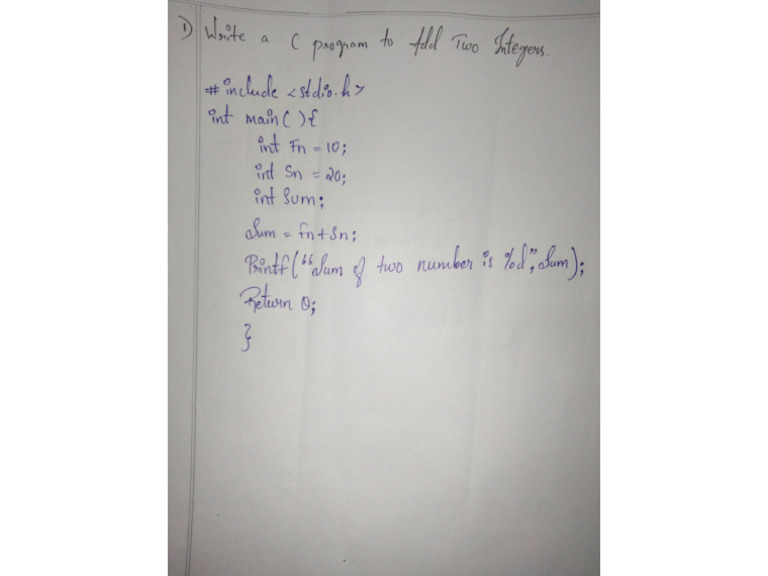 1) Write a C program to Add Two Integers.
#include <stdio.h>
int main( ){
int Fn = 10;
int Sn = 20;
int Sum;
Sum = Fn + Sn;
Printf("Sum of two number is %d", Sum);
Return 0;
}